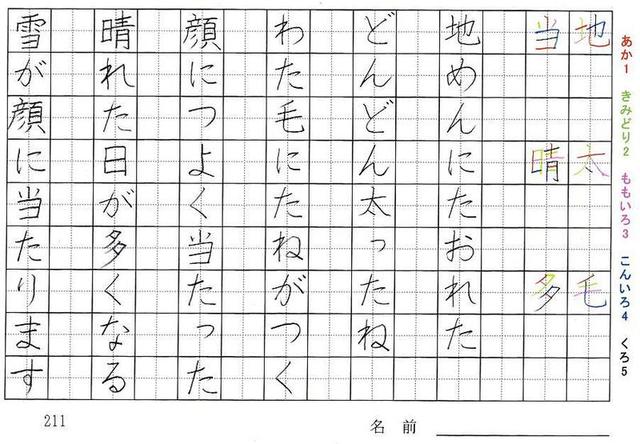 あか1 きみどり2 ももいろ3 こんいろ4 くろ5
地 太 毛
当 晴 多
地めんにたおれた
どんどん太ったね
わた毛にたねがつく
顔につよく当たった
晴れた日が多くなる
雪が顔に当たります
211
名前